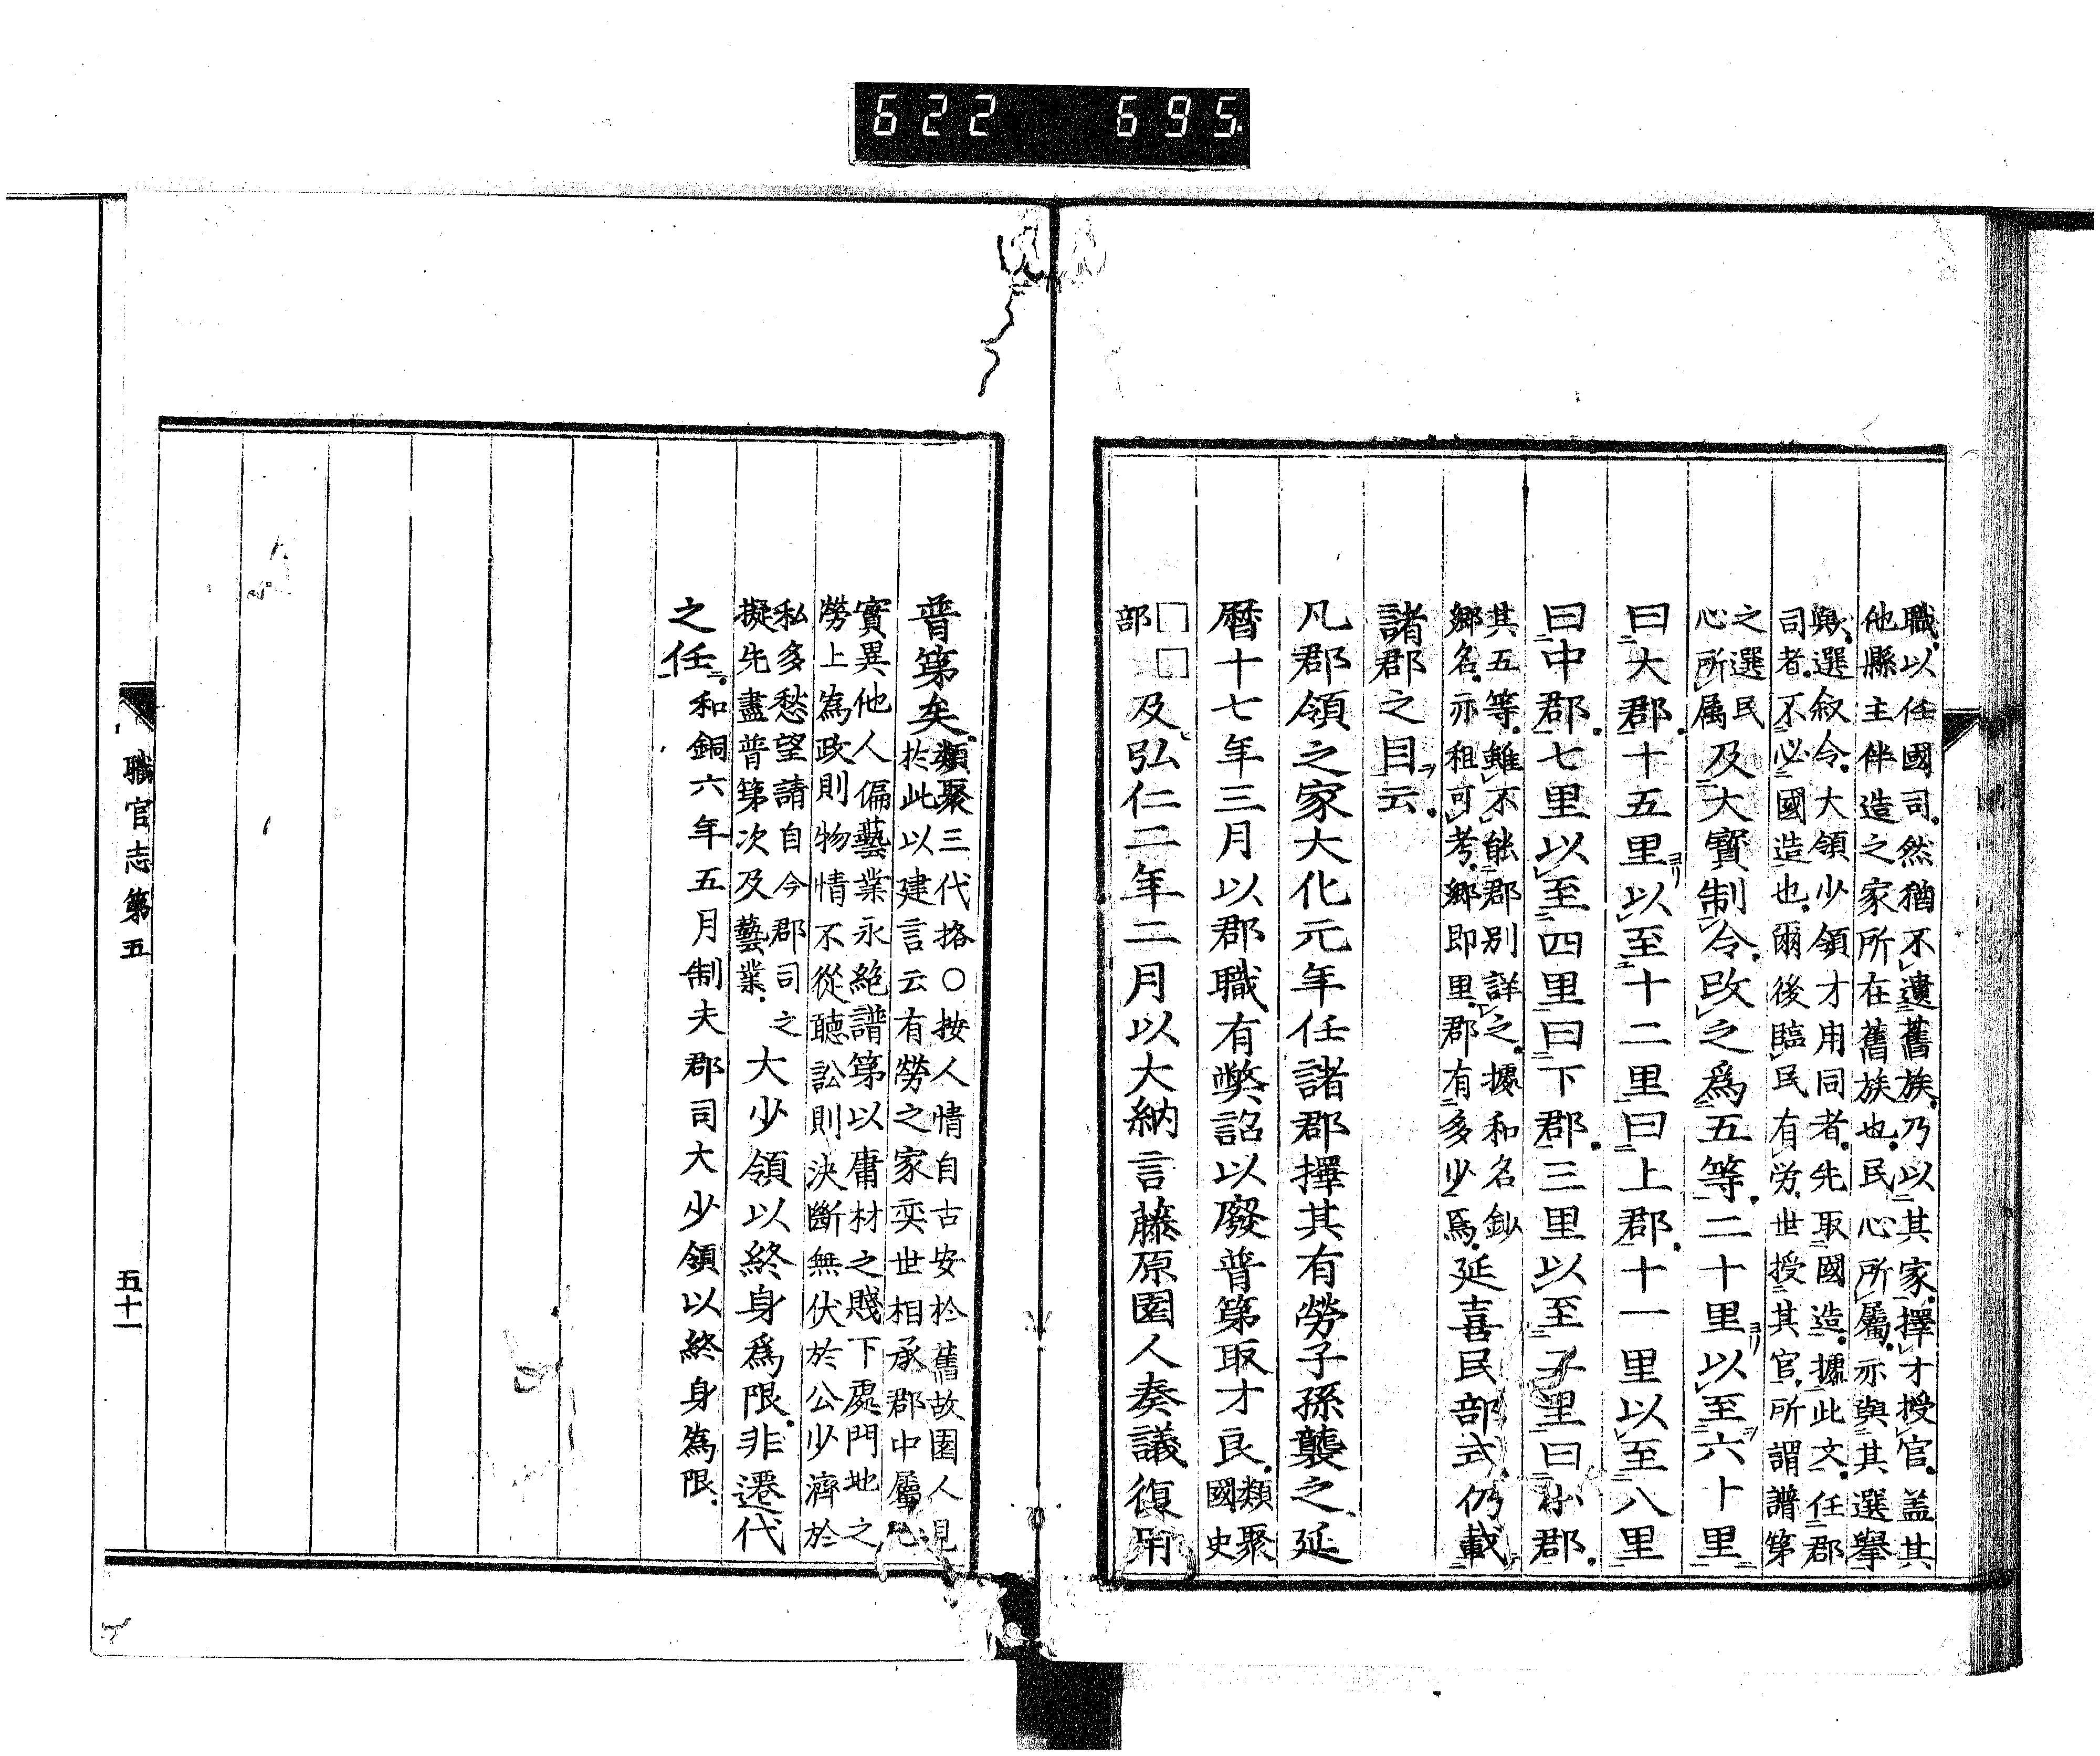 622 695
職以任國司然猶不遺舊族乃以其家擇才授官盖其
他縣主伴造之家所在舊族也民心所屬亦與其選擧
歟選叙令大領少領才用同者先取國造據此文任郡
司者不必國造也爾後臨民有労世授其官所謂譜第
之選民
心所属及大寶制令改之爲五等二十里以至六十里
曰大郡十五里以至十二里曰上郡十一里以至八里
曰中郡七里以至四里曰下郡三里以至子里曰小郡
其五等雖不能郡別詳之據和名鈔
郷名亦租可考郷即里郡有多少焉延喜民部式仍載
諸郡之目云
凡郡領之家大化元年任諸郡擇其有勞子孫襲之延
曆十七年三月以郡職有獘詔以廢普第取才良類聚
國史
□□
部及弘仁二年二月以大納言藤原園人奏議復用
普第矣類聚三代挌〇按人情自古安於舊故園人見
於此以建言云有勞之家奕世相承郡中屬
實異他人偏藝業永絶譜第以庸材之賤下處門地之
勞上為政則物情不從聽訟則決斷無伏於公少濟於
私多愁望請自今郡司之
擬先盡普第次及藝業大少領以終身爲限非遷代
之任和銅六年五月制夫郡司大少領以終身為限
職官志第五
五十一